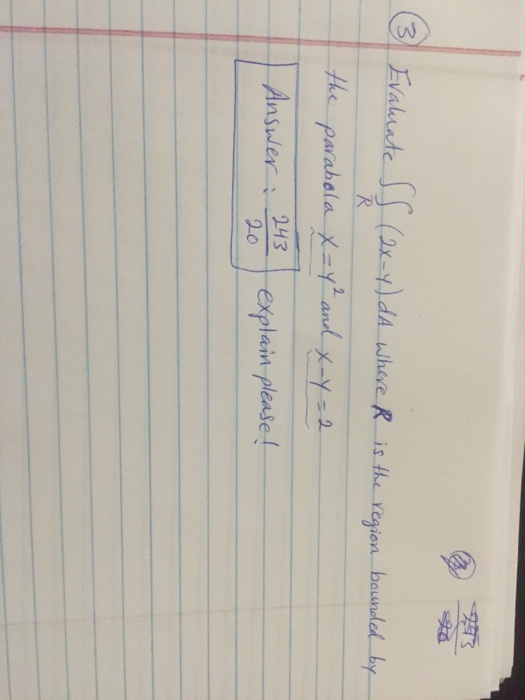 ③ Evaluate ∬_R (2x-y) dA where R is the region bounded by
the parabola x=y² and x-y=2
Answer: 243/20 explain please!